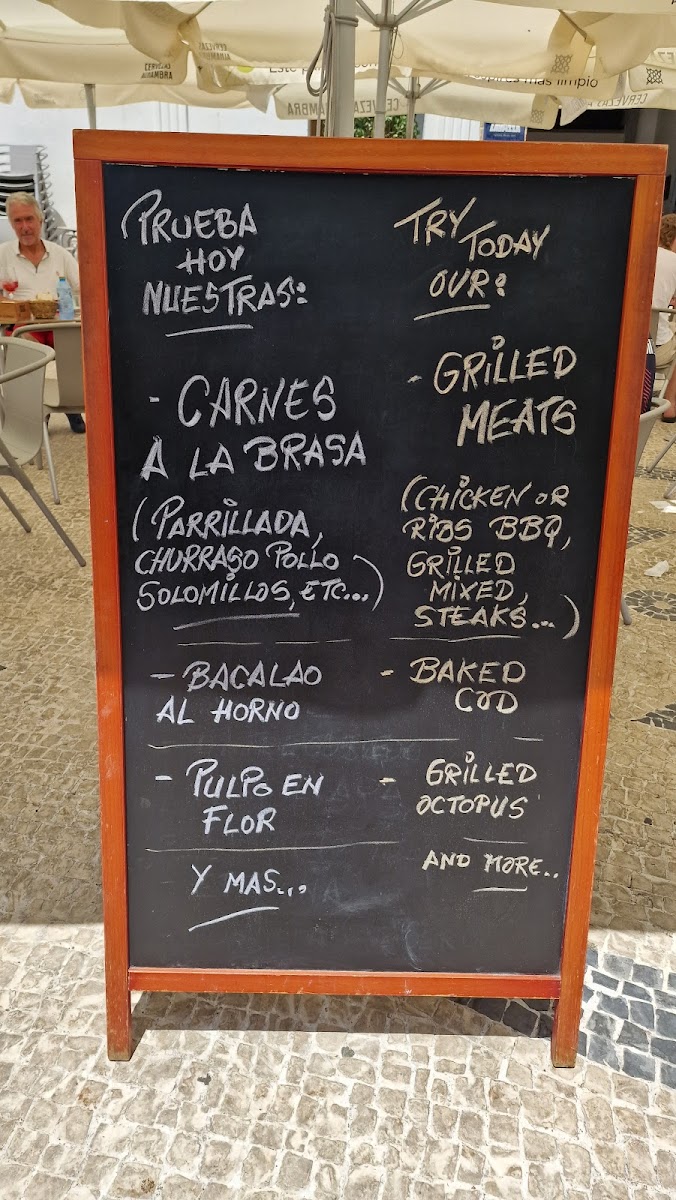 CERVEZAS
ALHAMBRA
CERVEZAS
más limpio
PRUEBA
HOY
NUESTRAS:
- CARNES
A LA BRASA
(PARRILLADA,
CHURRASO POLLO
SOLOMILLOS, ETC...)
- BACALAO
AL HORNO
- PULPO EN
FLOR
Y MAS...
TRY TODAY
OUR:
- GRILLED
MEATS
(CHICKEN OR
RIBS BBQ,
GRILLED
MIXED,
STEAKS...)
- BAKED
COD
- GRILLED
OCTOPUS
AND MORE..